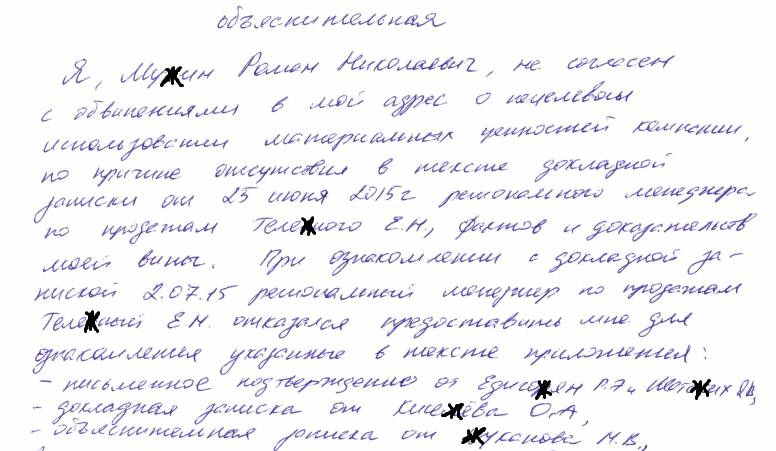 объяснительная
Я, Му ин Роман Николаевич, не согласен
с обвинениями в мой адрес о нецелевом
использовании материальных ценностей компании,
по причине отсутствия в тексте докладной
записки от 25 июня 2015г регионального менеджера
по продажам Теле ного Е.Н, фактов и доказательств
моей вины. При ознакомлении с докладной за-
пиской 2.07.15 региональный менеджер по продажам
Теле ный Е.Н. отказался предоставить мне для
ознакомления указанные в тексте приложения:
- письменное подтверждение от Р.Э и
- докладная записка от О.А,
- объяснительная записка от укапова М.В.,